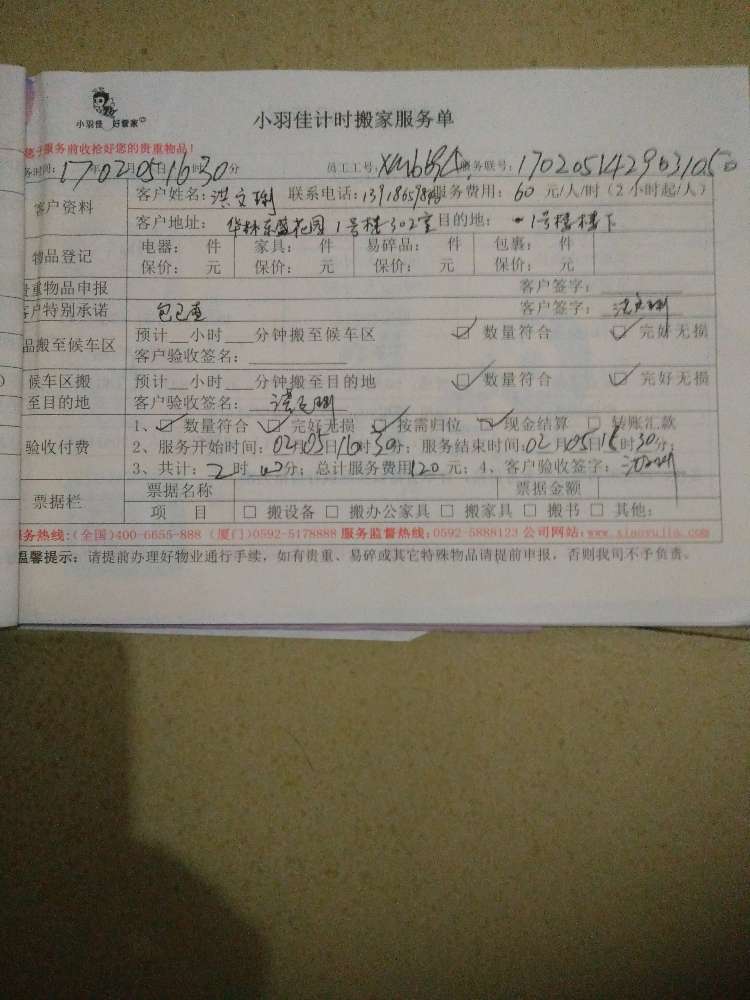 小羽佳 好管家
小羽佳计时搬家服务单
服务前收拾好您的贵重物品！
务时间：17年02月05日16时30分 员工工号： 服务联号：
客户资料 客户姓名： 联系电话： 服务费用：60 元/人/时（2小时起/人）
客户地址： 花园1号楼302室 目的地：1号楼楼下
物品登记 电器： 件 家具： 件 易碎品： 件 包裹： 件
保价： 元 保价： 元 保价： 元 保价： 元
贵重物品申报 客户签字：
客户特别承诺 客户签字：
品搬至候车区 预计__小时___分钟搬至候车区 数量符合 完好无损
客户验收签名：
候车区搬 预计__小时___分钟搬至目的地 数量符合 完好无损
至目的地 客户验收签名：
验收付费 1、数量符合 完好无损 按需归位 现金结算 转账汇款
2、服务开始时间：02月05日16时30分；服务结束时间：02月05日18时30分；
3、共计：2时 分；总计服务费用120元；4、客户验收签字：
票据栏 票据名称 票据金额
项 目 搬设备 搬办公家具 搬家具 搬书 其他：
服务热线：(全国)400-6655-888 (厦门)0592-5178888 服务监督热线：0592-5888123 公司网站：www.xiaoyujia.com
温馨提示：请提前办理好物业通行手续，如有贵重、易碎或其它特殊物品请提前申报，否则我司不予负责。